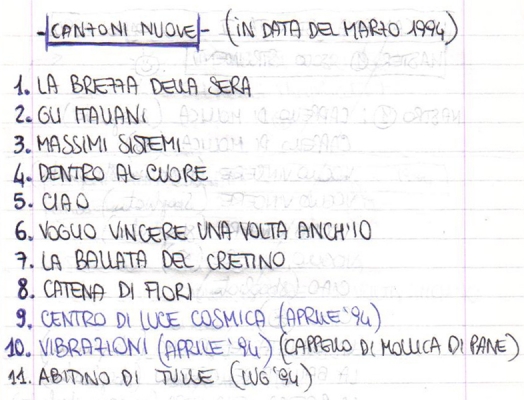 - CANZONI NUOVE - (IN DATA DEL MARZO 1994)
1. LA BREZZA DELLA SERA
2. GLI ITALIANI
3. MASSIMI SISTEMI
4. DENTRO AL CUORE
5. CIAO
6. VOGLIO VINCERE UNA VOLTA ANCH'IO
7. LA BALLATA DEL CRETINO
8. CATENA DI FIORI
9. CENTRO DI LUCE COSMICA (APRILE '94)
10. VIBRAZIONI (APRILE '94) (CAPPELLO DI MOLLICA DI PANE)
11. ABITINO DI TULLE (LUG '94)